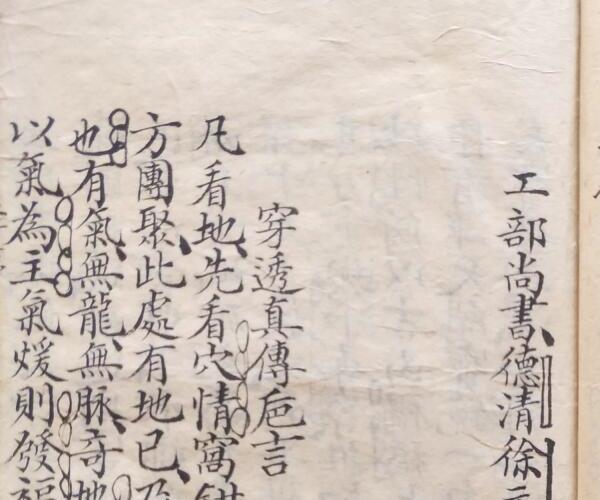 工部尚書德清徐
穿透真傳巵言
凡看地先看穴情窩
方團聚此處有地已
也有氣無龍無脉奇地
以氣為主氣煖則發福